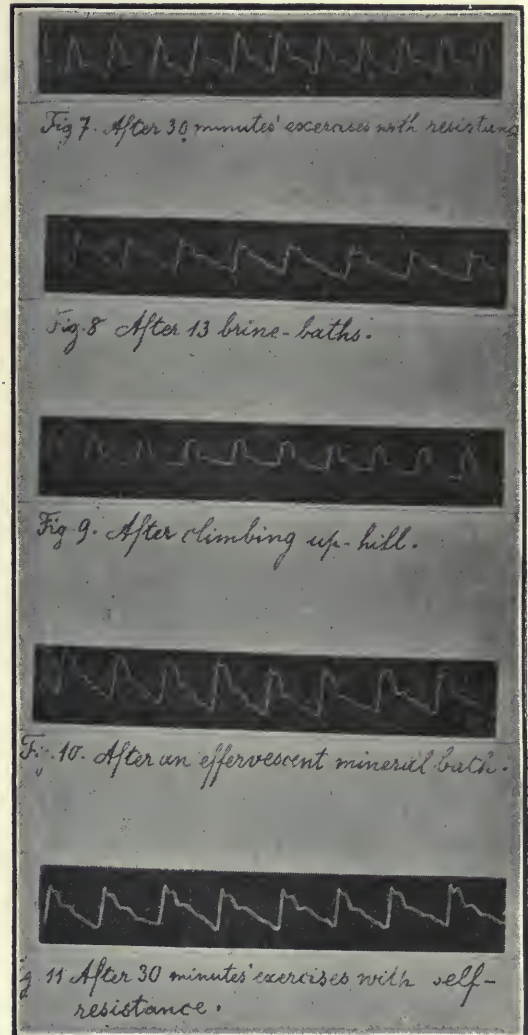 Fig 7. After 30 minutes' exercises with resistanc
Fig. 8 After 13 brine-baths.
Fig. 9. After climbing up-hill.
Fi. 10. After an effervescent mineral bath.
g. 11 After 30 minutes' exercises with self-
resistance.